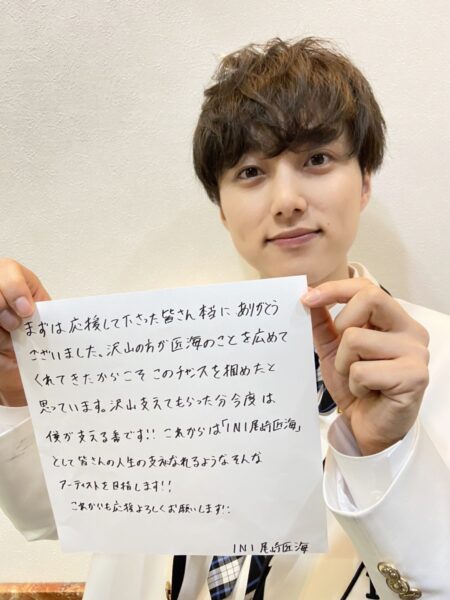 まずは応援して下さった皆さん本当にありがとう
ございました、沢山の方が匠海のことを広めて
くれてきたからこそこのチャンスを掴めたと
思っています。沢山支えてもらった分今度は
僕が支える番です!! これからは「INI尾崎匠海」
として皆さんの人生の支えなれるようなそんな
アーティストを目指します!!
これからも応援よろしくお願いします!!
INI 尾崎匠海